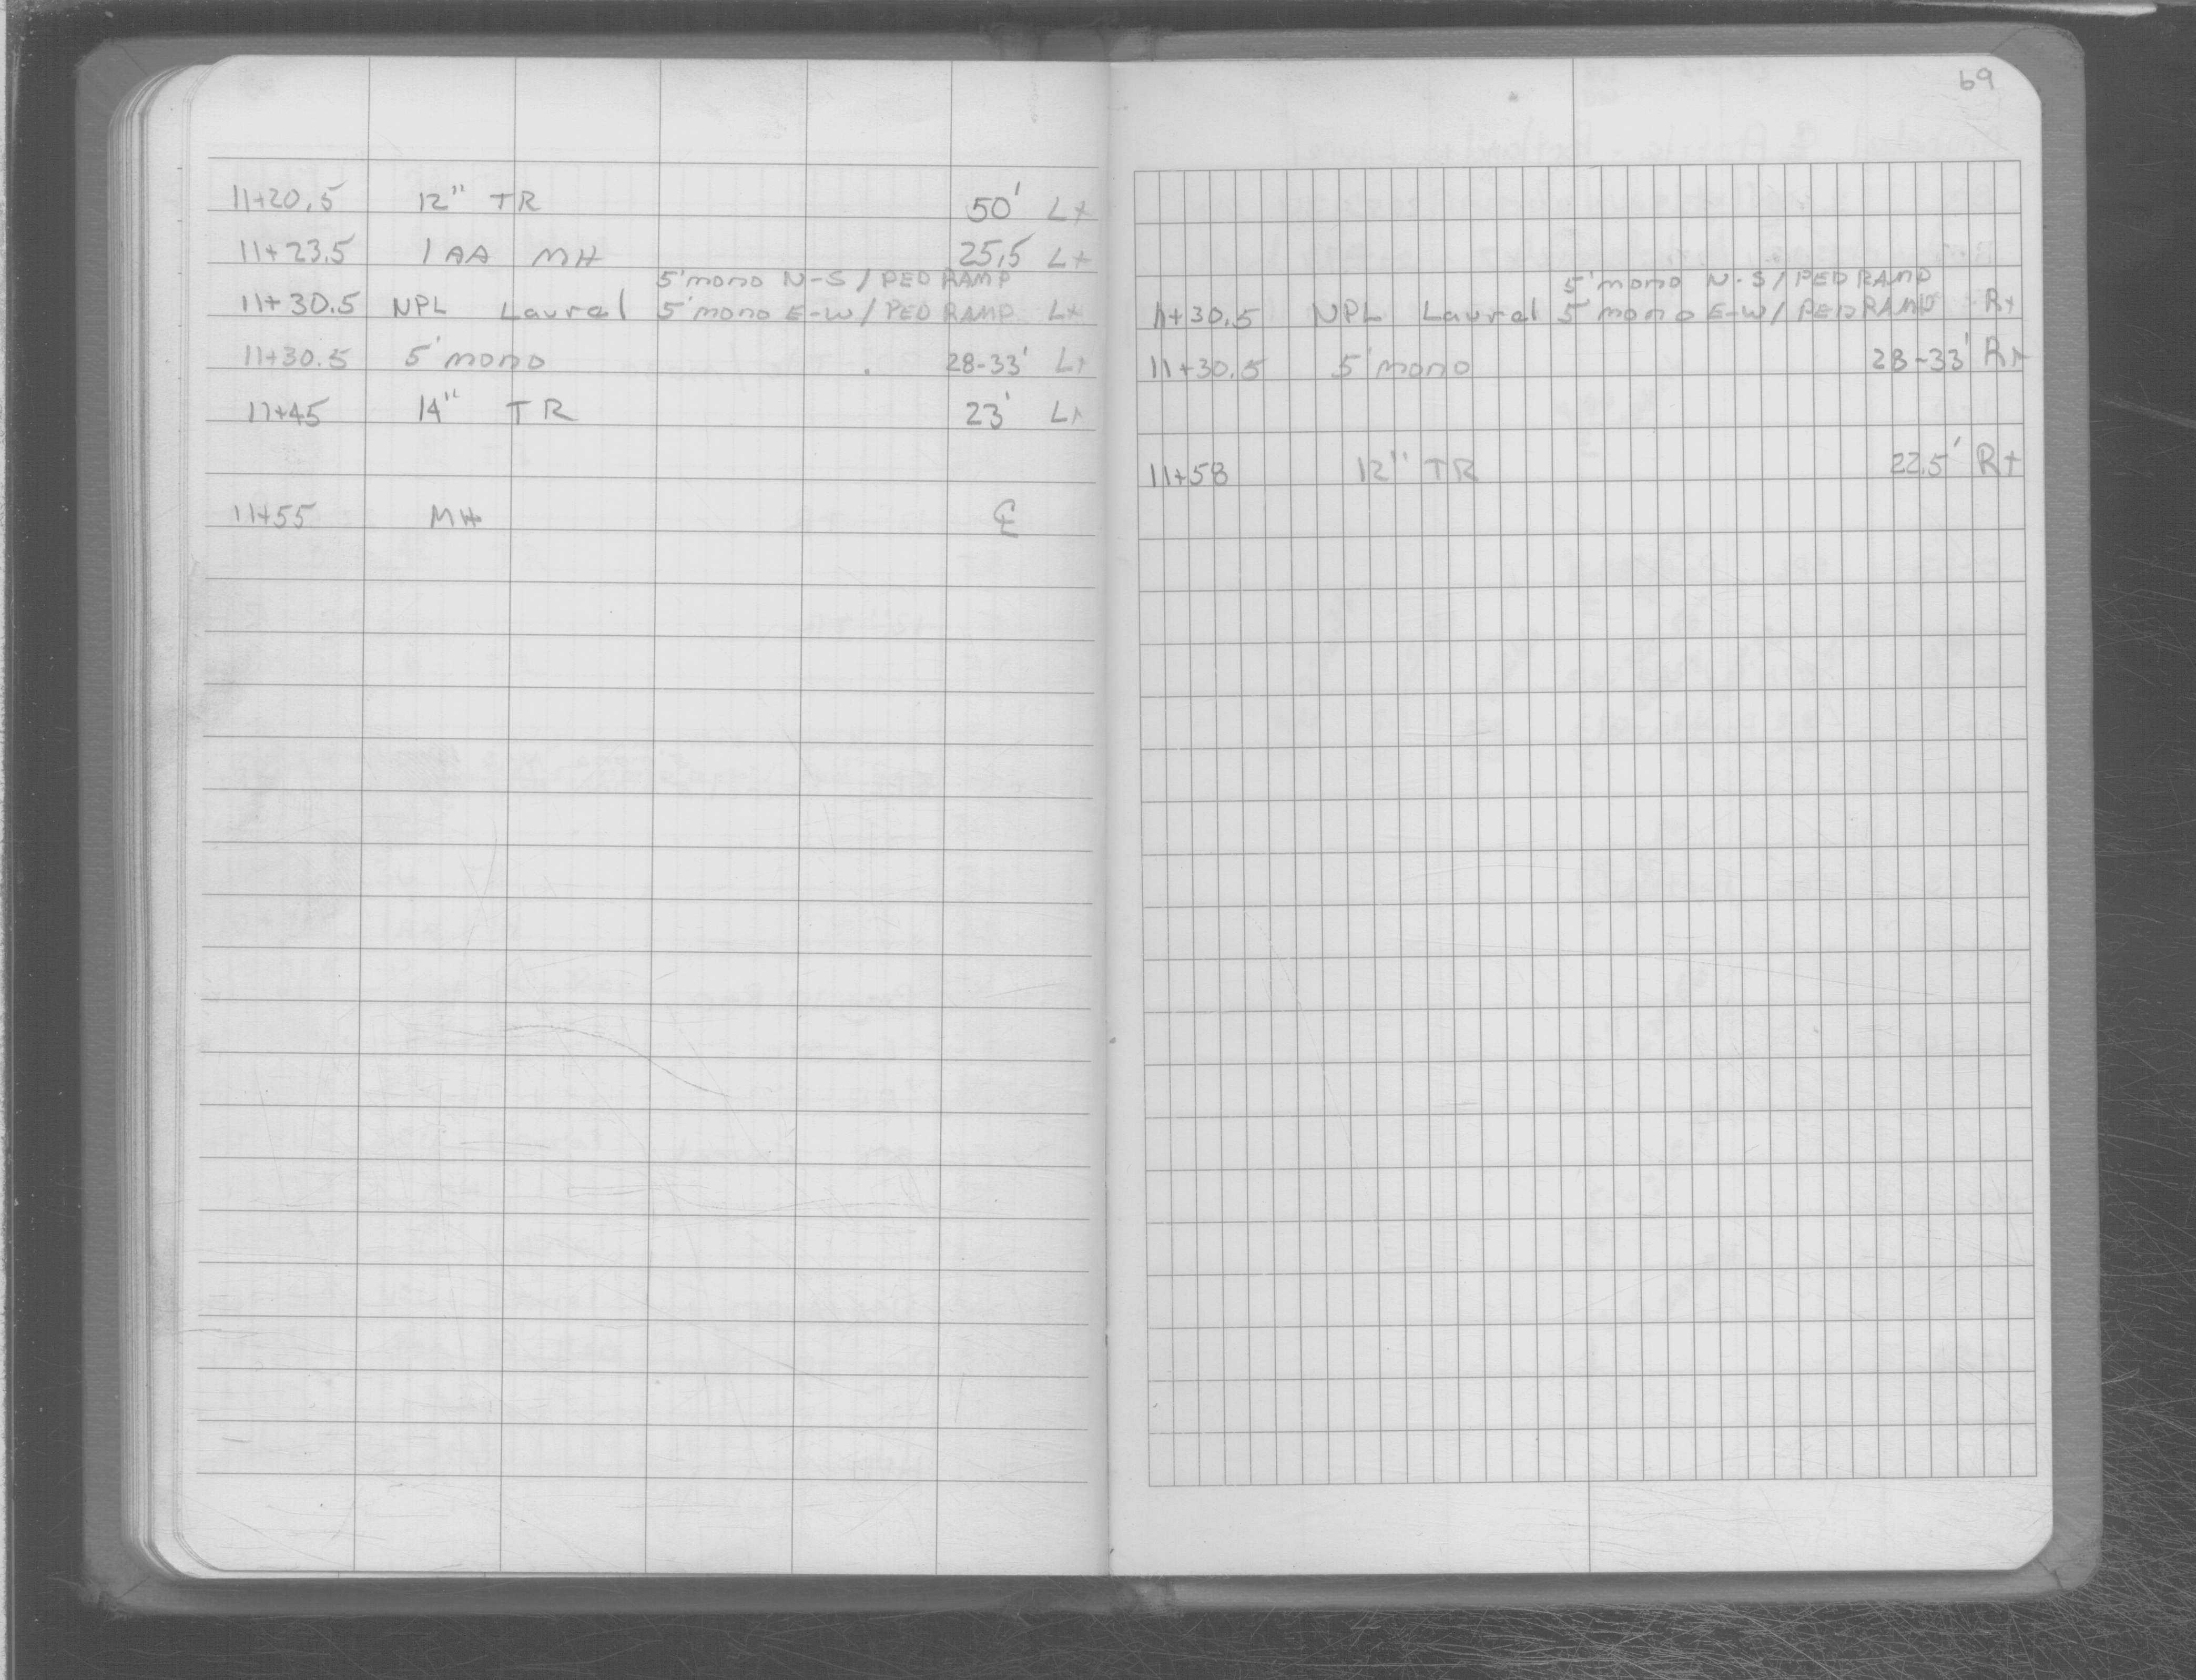 11+20.5 12" TR 50' Lt
11+23.5 1 AA MH 25.5 Lt
5' mono N-S / PED RAMP
11+30.5 NPL Laurel 5' mono E-W / PED RAMP Lt
11+30.5 5' mono 28-33' Lt
11+45 14" TR 23' Lt
11+55 MH ℄
69
5' mono N-S / PED RAMP
11+30.5 NPL Laurel 5' mono E-W / PED RAMP Rt
11+30.5 5' mono 28-33' Rt
11+58 12" TR 22.5' Rt